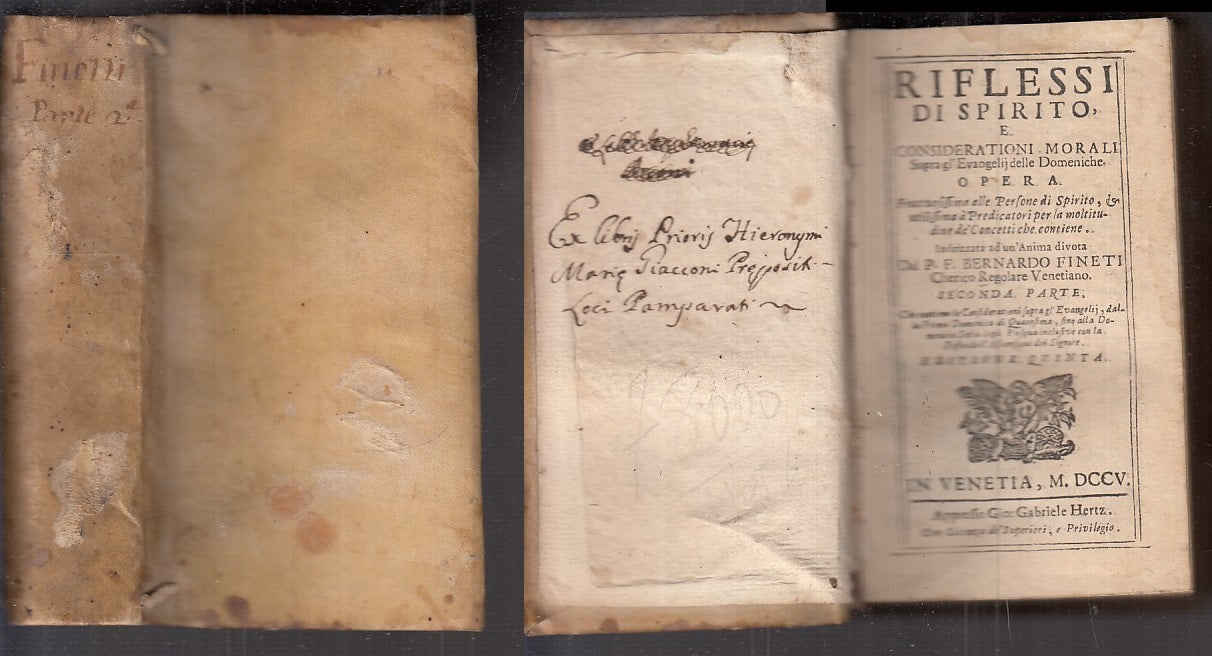 Finetti
Parte 2ª
Ex libris Prioris Hieronymi
Marię Giacconi Prępositi
Loci Pamparati
RIFLESSI
DI SPIRITO,
E
CONSIDERATIONI MORALI
Sopra gl' Evangelij delle Domeniche.
OPERA
Fruttuosissima alle Persone di Spirito, &
utilissima à Predicatori per la moltitu-
dine de' Concetti che contiene.
Indrizzata ad un'Anima divota
Dal P. F. BERNARDO FINETI
Cherico Regolare Venetiano.
SECONDA PARTE.
Che contiene le Considerationi sopra gl' Evangelij, dal-
la Prima Domenica di Quaresima, fino alla Do-
Pasqua inclusive con la
del Signore.
EDITIONE QUINTA.
IN VENETIA, M. DCCV.
Appresso Gio: Gabriele Hertz.
Con Licenza de' Superiori, e Privilegio.